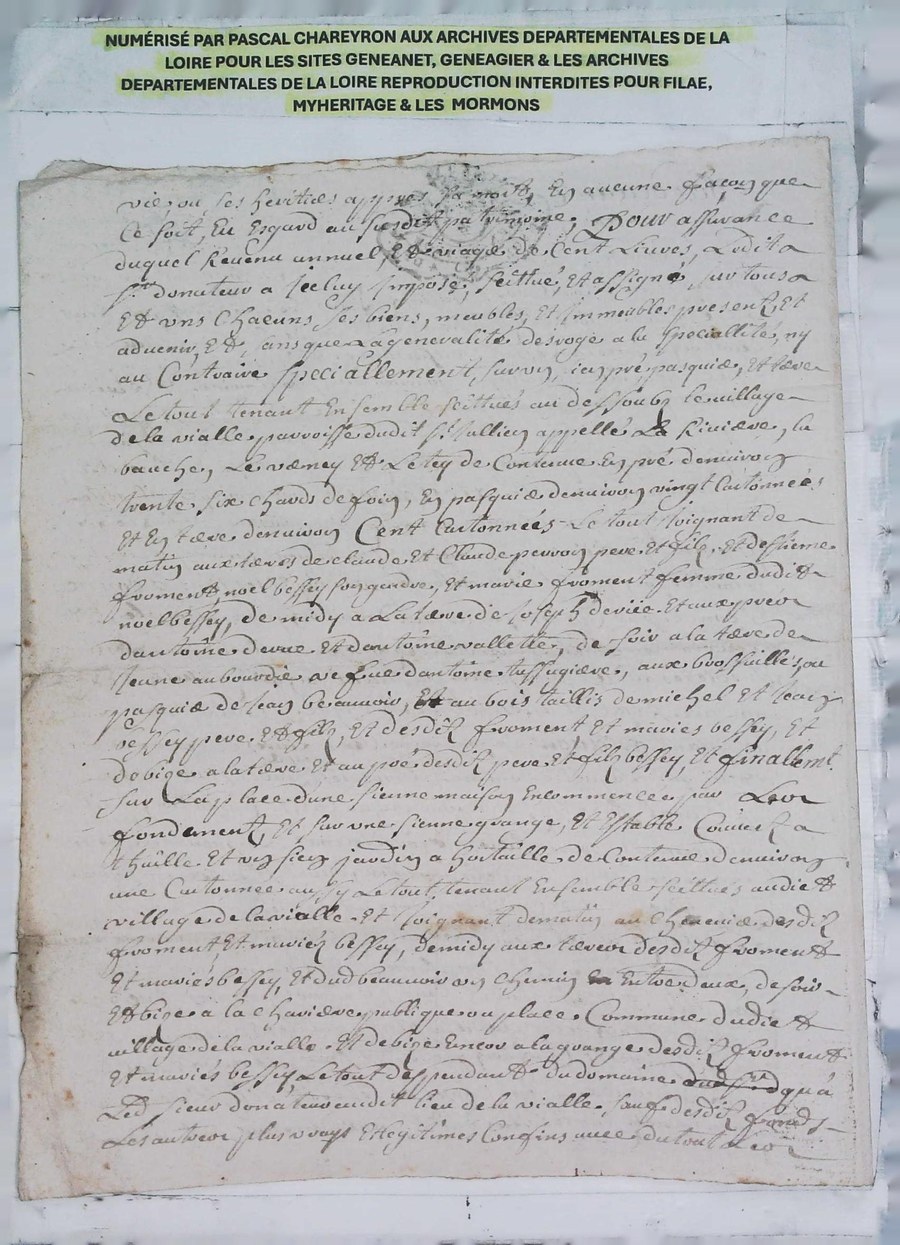 NUMÉRISÉ PAR PASCAL CHAREYRON AUX ARCHIVES DEPARTEMENTALES DE LA
LOIRE POUR LES SITES GENEANET, GENEAGIER & LES ARCHIVES
DEPARTEMENTALES DE LA LOIRE REPRODUCTION INTERDITES POUR FILAE,
MYHERITAGE & LES MORMONS
vie ou ses heritiers apres sa mort, En aucune façon que
Ce soit, Eu Esgard au susdit patrimoine, Pour assurance
duquel Revenu annuel, Et viage de Cent Livres, Ledit
sr donateur a Icelluy Imposé, scittué, Et assigné sur tous
Et uns Chacuns ses biens, meubles, Et Immeubles presentz Et
advenir, Et, sans que La generalité desroge a la speciallité, ny
au Contraire speciallement, sur un sien pré pasquier, Et terre
Le tout tenant Ensemble scittués au dessoubz le village
de la vialle parroisse dudit st Jullien appellé La Riviere, la
bauche, Le verney Et Letey de Contenue En pré denviron
trente six Chards de foin, En pasquier denviron vingt Cartonnées
Et En terre denviron Cent Cartonnées Le tout Joignant de
matin aux terres de claude Et Claude perron pere et filz, Et destienne
froment noel bessey son gendre, Et marie froment femme dudit
noel bessey, de midy a La terre de Joseph Et aux
dantoine Et dantoine vallette, de soir a la terre de
vefve dantoine aux
pasquier de Jean beauvoir, Et au bois taillis de michel Et Jean
bessey pere Et filz, Et desditz froment Et mariés bessey, Et
de bize a la terre Et au pré desditz pere Et filz bessey, Et finallemt
sur La place dune sienne maison Encommencée par Leur
fondement, Et sur une sienne grange, Et Estable Couverts a
thuille Et un sien jardin a hortaille de Contenue denviron
une Cartonnée aussy Le tout tenant Ensemble scittués audit
village de la vialle Et Joignant de matin au Chenevier desditz
froment, Et mariés bessey, de midy aux terres desditz froment
Et mariés bessey, Et dud beauvoir un Chemin Entre deux, de soir
Et bize a la Charriere publique ou place Commune dudit
village de la vialle Et de bize Encor a la grange desditz froment
Et mariés bessey, Le tout deppendant du domaine qu'a
Led sieur donateur audit lieu de la vialle, sauf desditz fonds
Les autres plus vrays Et legitimes Confins avec du tout Leur